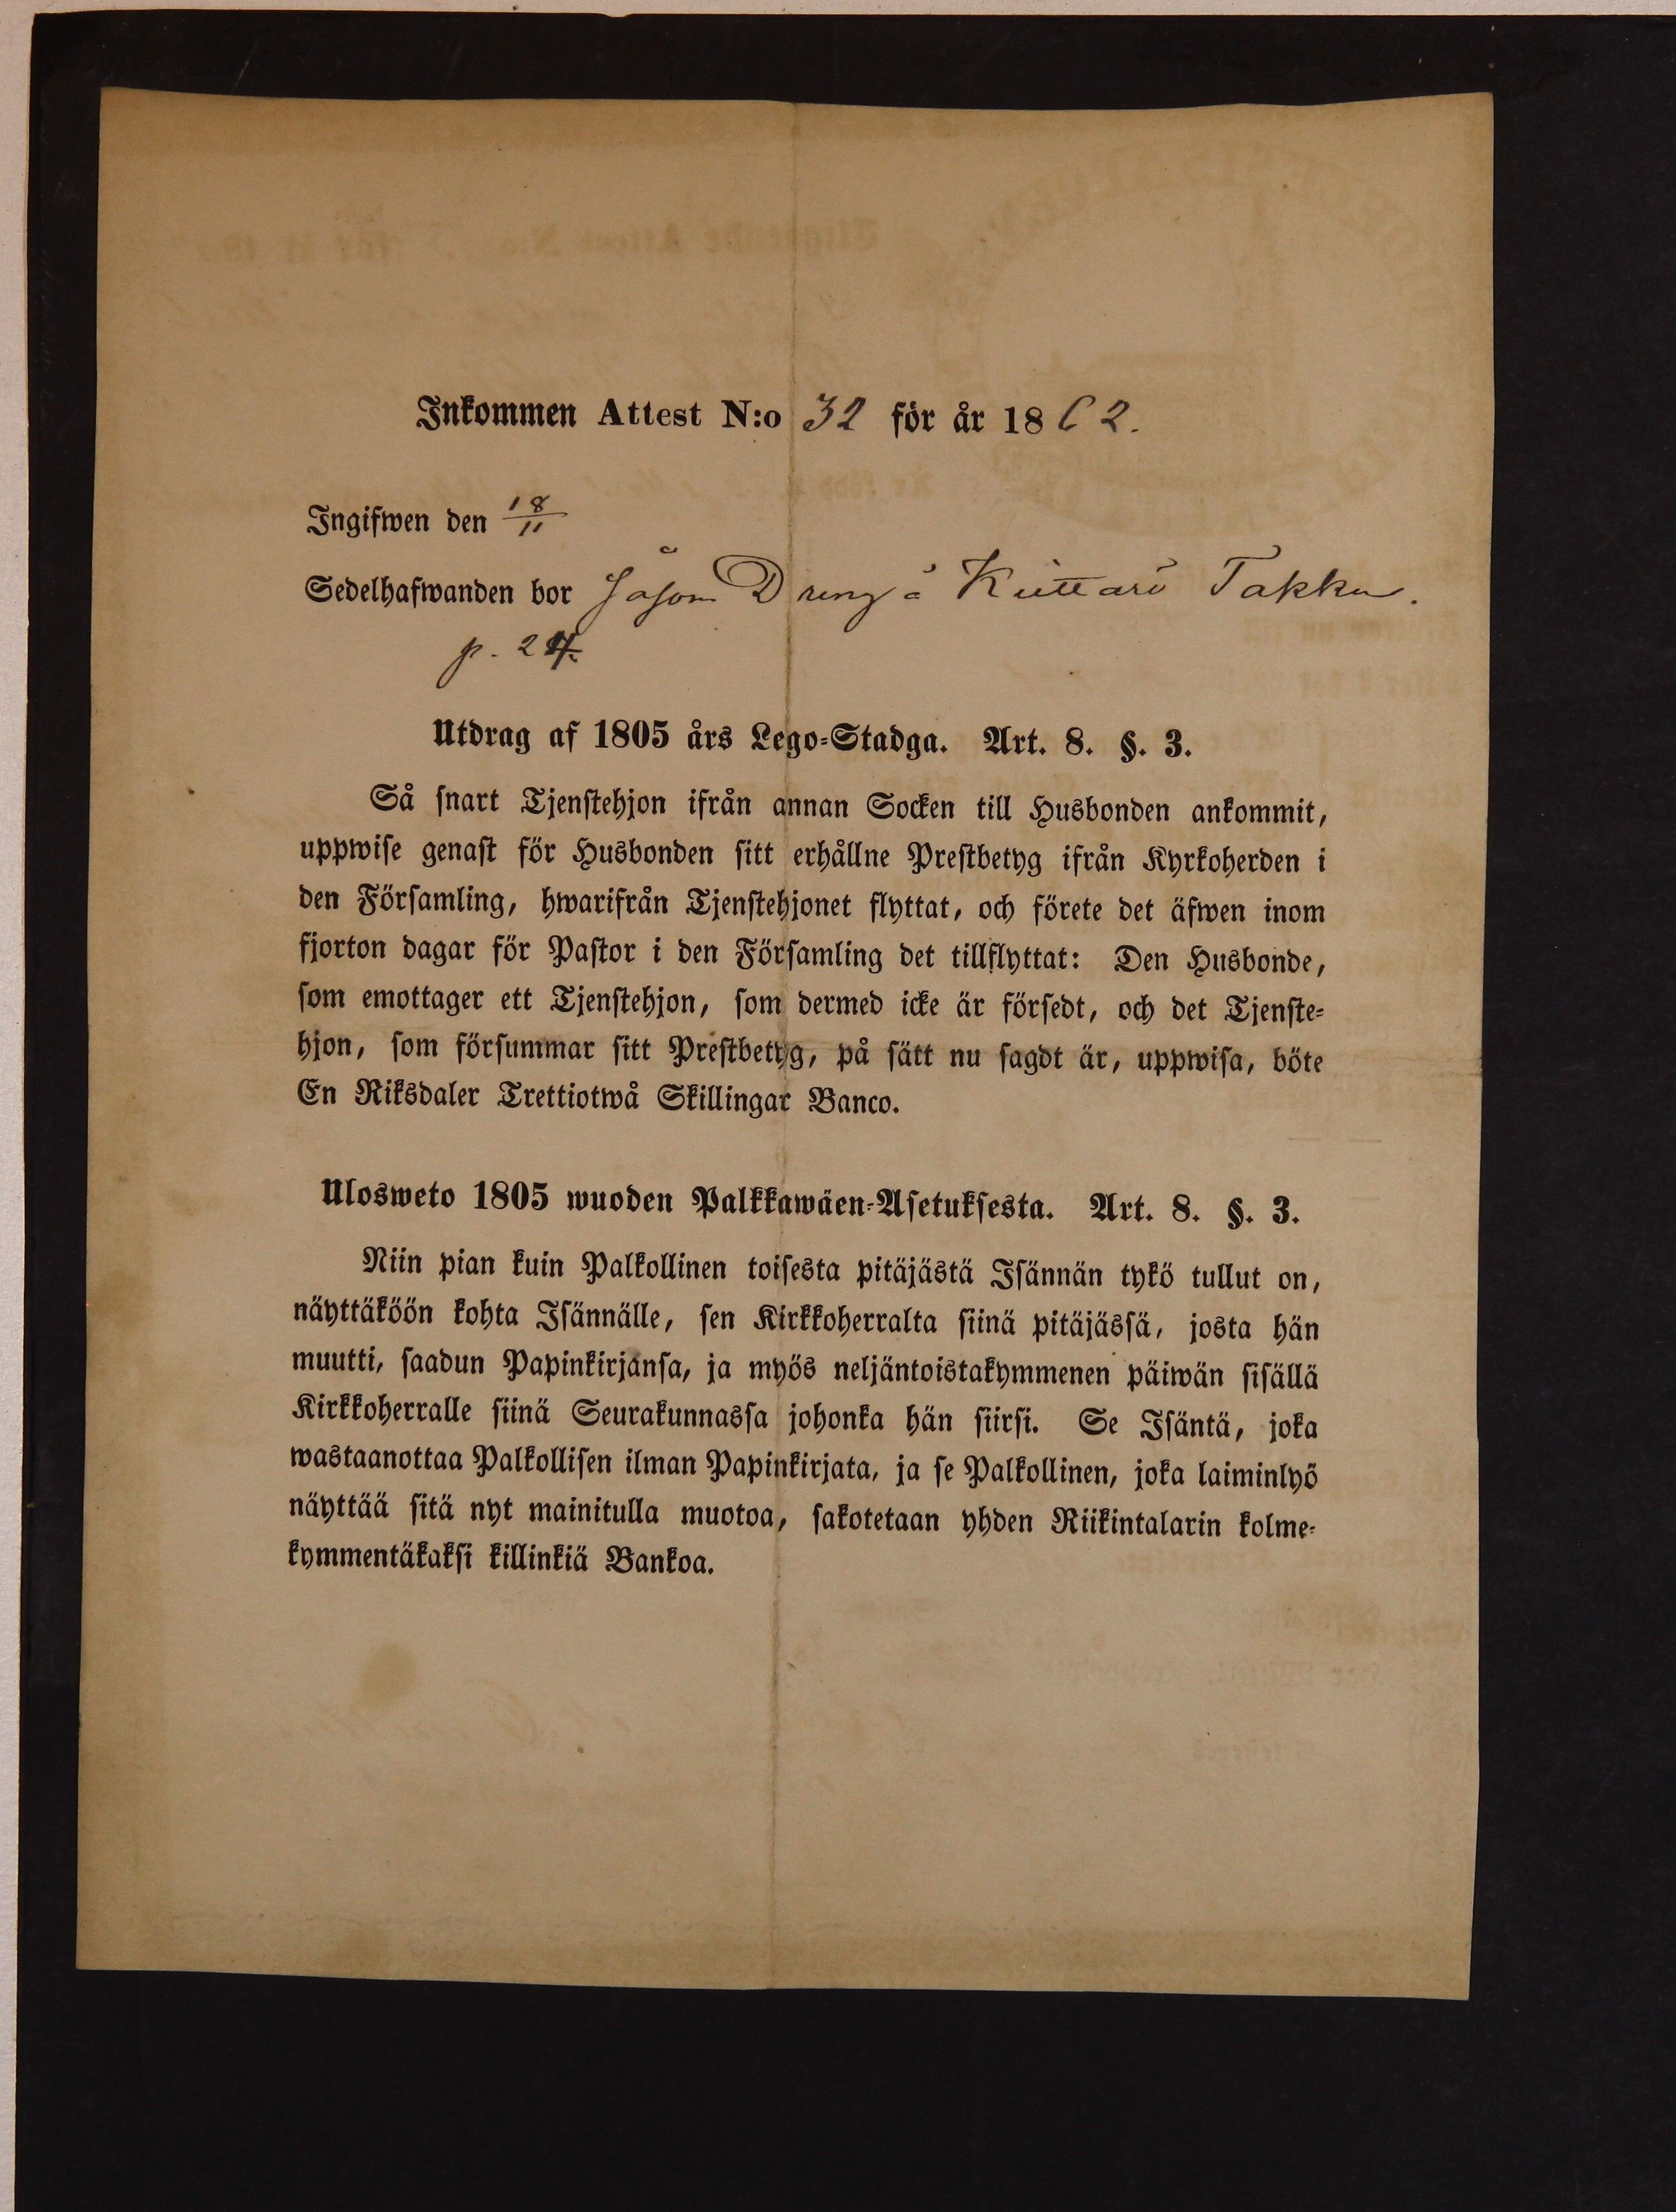 Inkommen Attest N:o 32 för år 1862.
Ingifwen den 18/11
Sedelhafwanden bor såsom Dreng å Kuttari Takku.
p. 24.
Utdrag af 1805 års Lego-Stadga. Art. 8. §. 3.
Så snart Tjenstehjon ifrån annan Socken till Husbonden ankommit,
uppwise genast för Husbonden sitt erhållne Prestbetyg ifrån Kyrkoherden i
den Församling, hwarifrån Tjenstehjonet flyttat, och förete det äfwen inom
fjorton dagar för Pastor i den Församling det tillflyttat: Den Husbonde,
som emottager ett Tjenstehjon, som dermed icke är försedt, och det Tjenste-
hjon, som försummar sitt Prestbetyg, på sätt nu sagdt är, uppwisa, böte
En Riksdaler Trettiotwå Skillingar Banco.
Ulosweto 1805 wuoden Palkkawäen-Asetuksesta. Art. 8. §. 3.
Niin pian kuin Palkollinen toisesta pitäjästä Isännän tykö tullut on,
näyttäköön kohta Isännälle, sen Kirkkoherralta siinä pitäjässä, josta hän
muutti, saadun Papinkirjansa, ja myös neljäntoistakymmenen päiwän sisällä
Kirkkoherralle siinä Seurakunnassa johonka hän siirsi. Se Isäntä, joka
wastaanottaa Palkollisen ilman Papinkirjata, ja se Palkollinen, joka laiminlyö
näyttää sitä nyt mainitulla muotoa, sakotetaan yhden Riikintalarin kolme-
kymmentäkaksi killinkiä Bankoa.